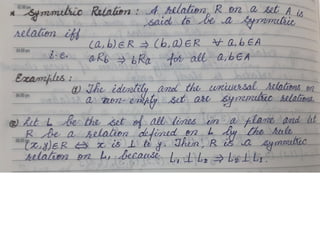 * Symmetric Relation : A relation R on a set A is
said to be a symmetric
relation iff
(a,b)∈R ⇒ (b,a)∈R ∀ a,b∈A
i.e. aRb ⇒ bRa for all a,b∈A
Examples :
① The identity and the universal relations on
a non-empty set are symmetric relations.
② Let L be the set of all lines in a plane and let
R be a relation defined on L by the rule
(x,y)∈R ⇔ x is ⊥ to y. Then, R is a symmetric
relation on L, because L₁ ⊥ L₂ ⇒ L₂ ⊥ L₁.